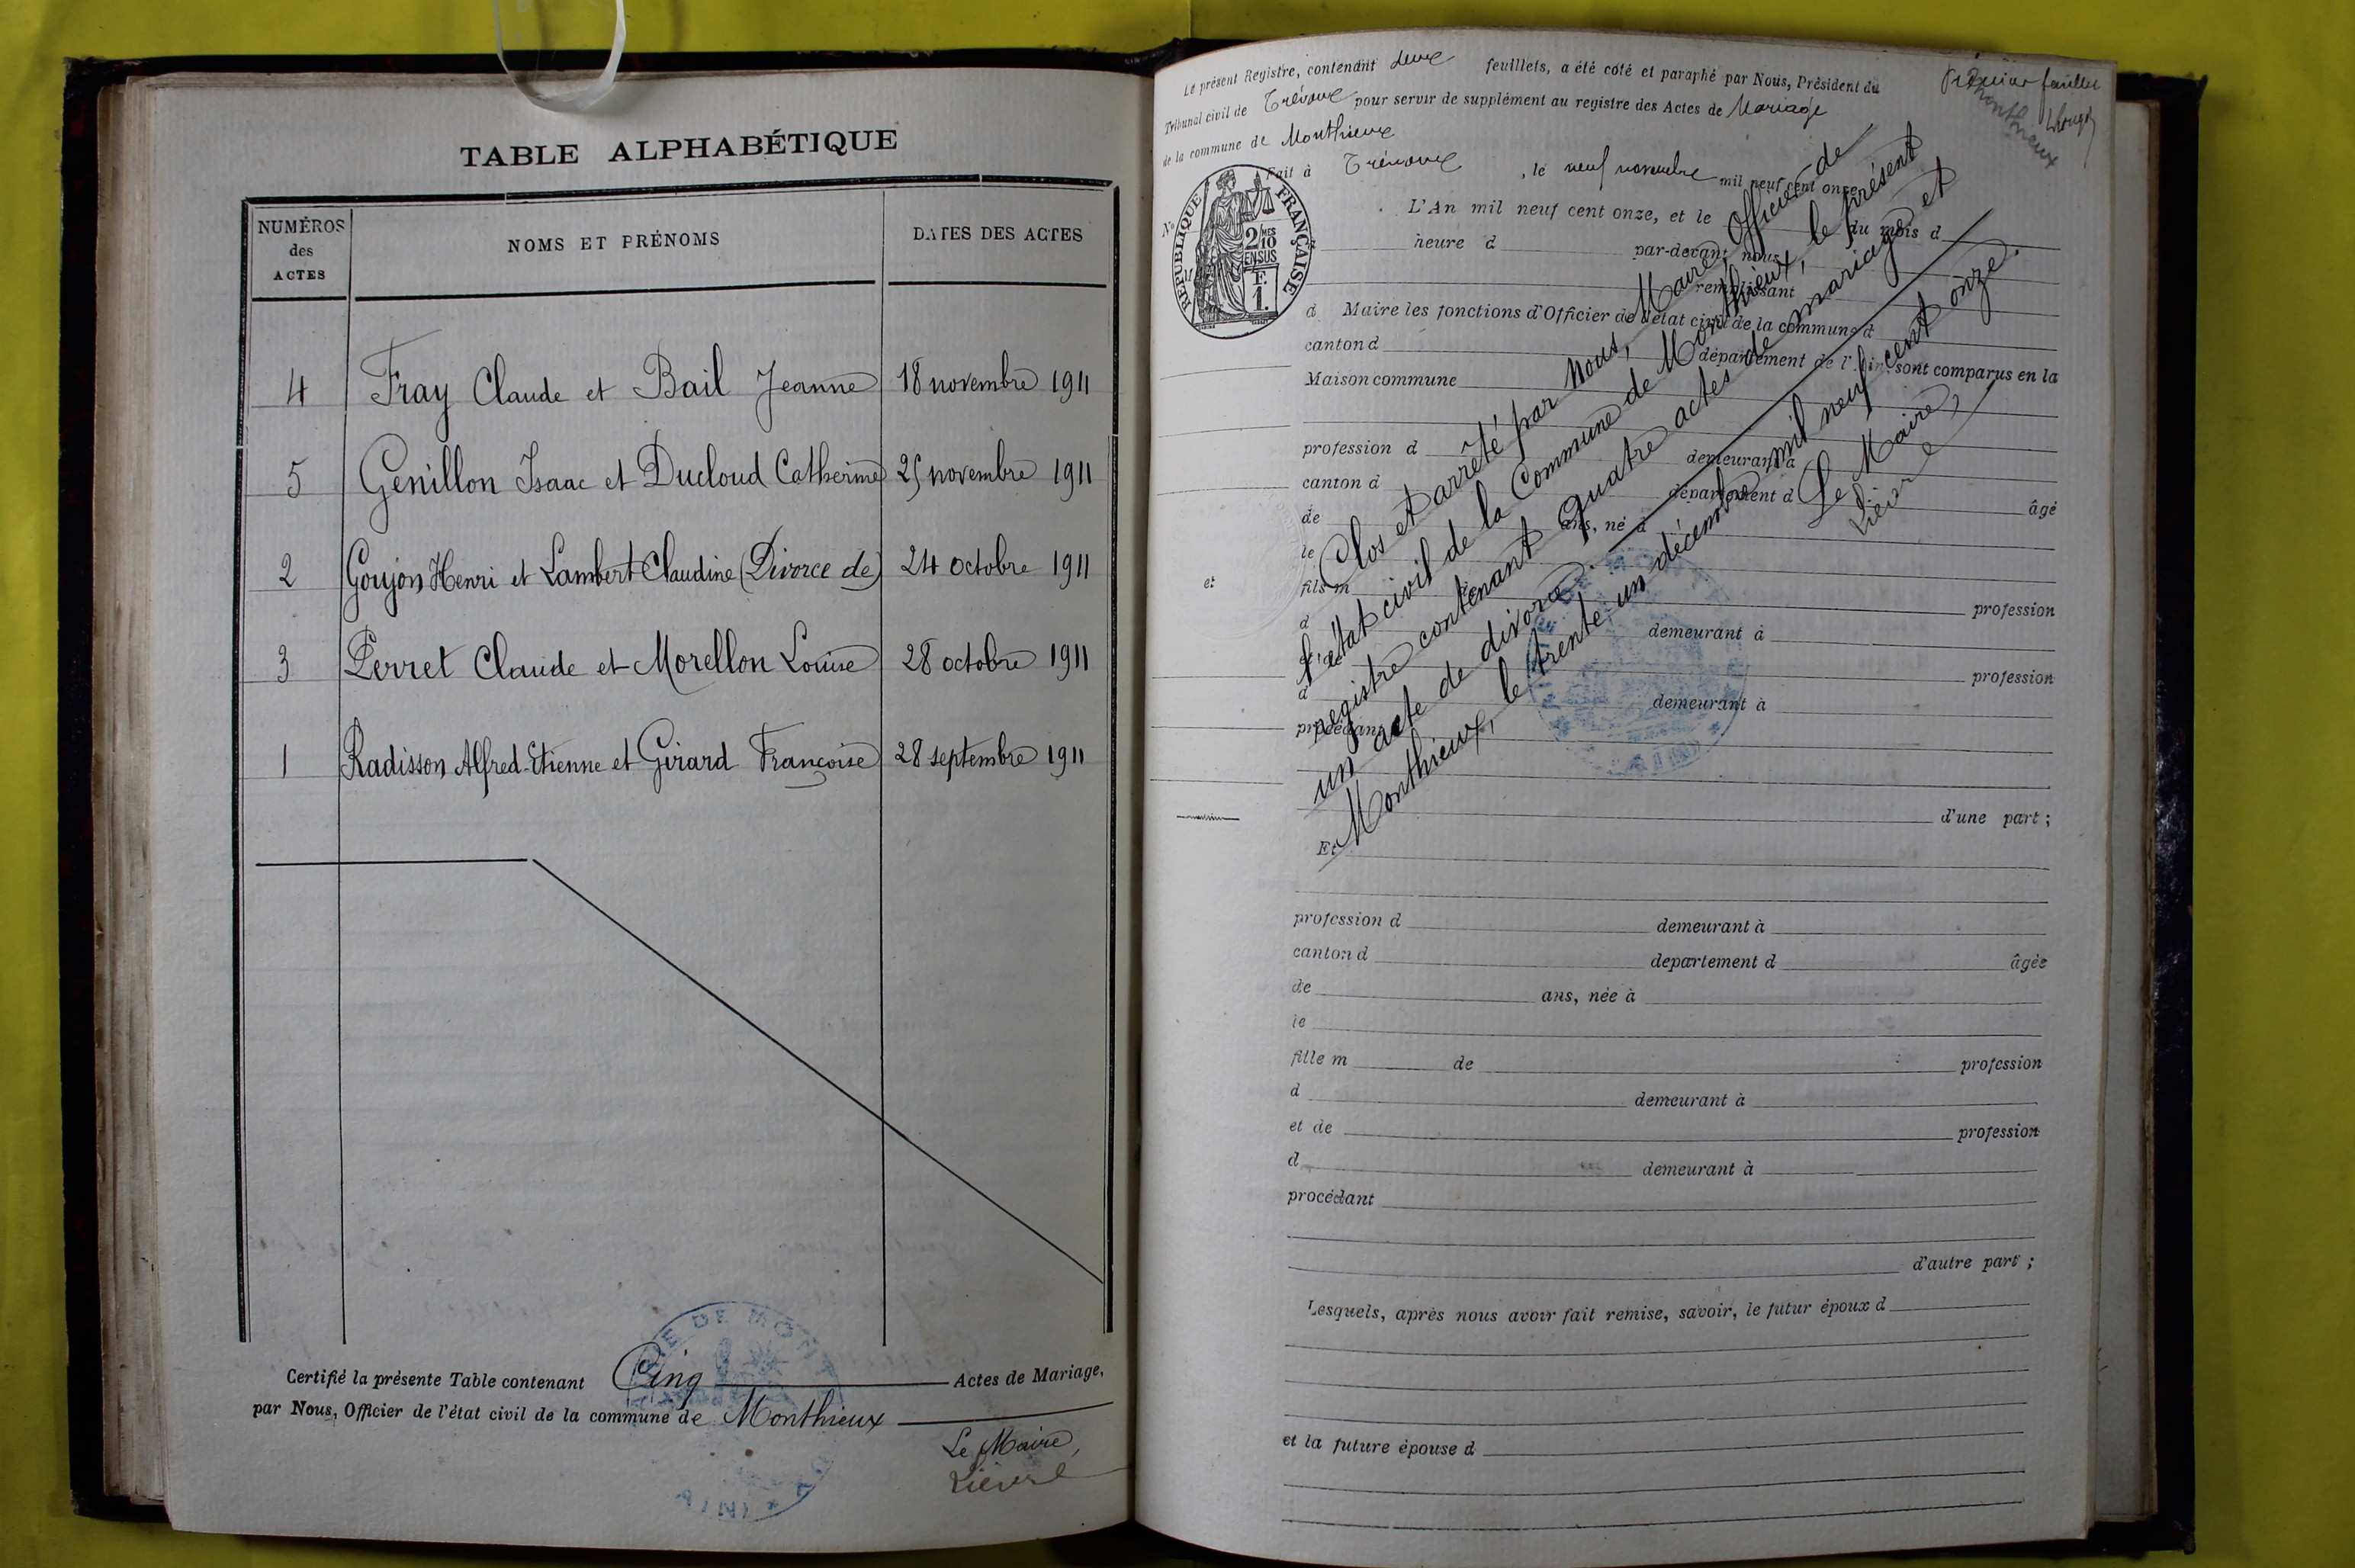 TABLE ALPHABÉTIQUE
NUMÉROS des ACTES
NOMS ET PRÉNOMS
DATES DES ACTES
4 Fray Claude et Bail Jeanne 18 novembre 1911
5 Genillon Isaac et Ducloud Catherine 25 novembre 1911
2 Goujon Henri et Lambert Claudine (Divorce de) 24 octobre 1911
3 Perret Claude et Morellon Louise 28 octobre 1911
1 Radisson Alfred-Etienne et Girard Françoise 28 septembre 1911
Certifié la présente Table contenant Cinq Actes de Mariage,
par Nous, Officier de l'état civil de la commune de Monthieux
Le Maire,
Lièvre
Le présent Registre, contenant deux feuillets, a été coté et paraphé par Nous, Président du
Tribunal civil de Trévoux pour servir de supplément au registre des Actes de Mariage
de la commune de Monthieux
Premier feuillet
Monthieux
Fait à Trévoux, le neuf novembre mil neuf cent onze
RÉPUBLIQUE FRANÇAISE
2/10 MES EN SUS
1 F.
L'An mil neuf cent onze, et le du mois d
heure d par-devant nous
remplissant
d Maire les fonctions d'Officier de l'état civil de la commune d
canton d département de l'Ain, sont comparus en la
Maison commune
profession d demeurant à
canton d département d âgé
de ans, né à
le
et
fils m de profession
d demeurant à
et de profession
d demeurant à
procédant
d'une part ;
Et
Clos et arrêté par Nous, Maire, Officier de
l'état civil de la Commune de Monthieux, le présent
registre contenant quatre actes de mariage et
un acte de divorce.
Monthieux, le trente-un décembre mil neuf cent onze.
Le Maire,
Lièvre
profession d demeurant à
canton d département d âgée
de ans, née à
le
fille m de profession
d demeurant à
et de profession
d demeurant à
procédant
d'autre part ;
Lesquels, après nous avoir fait remise, savoir, le futur époux d
et la future épouse d